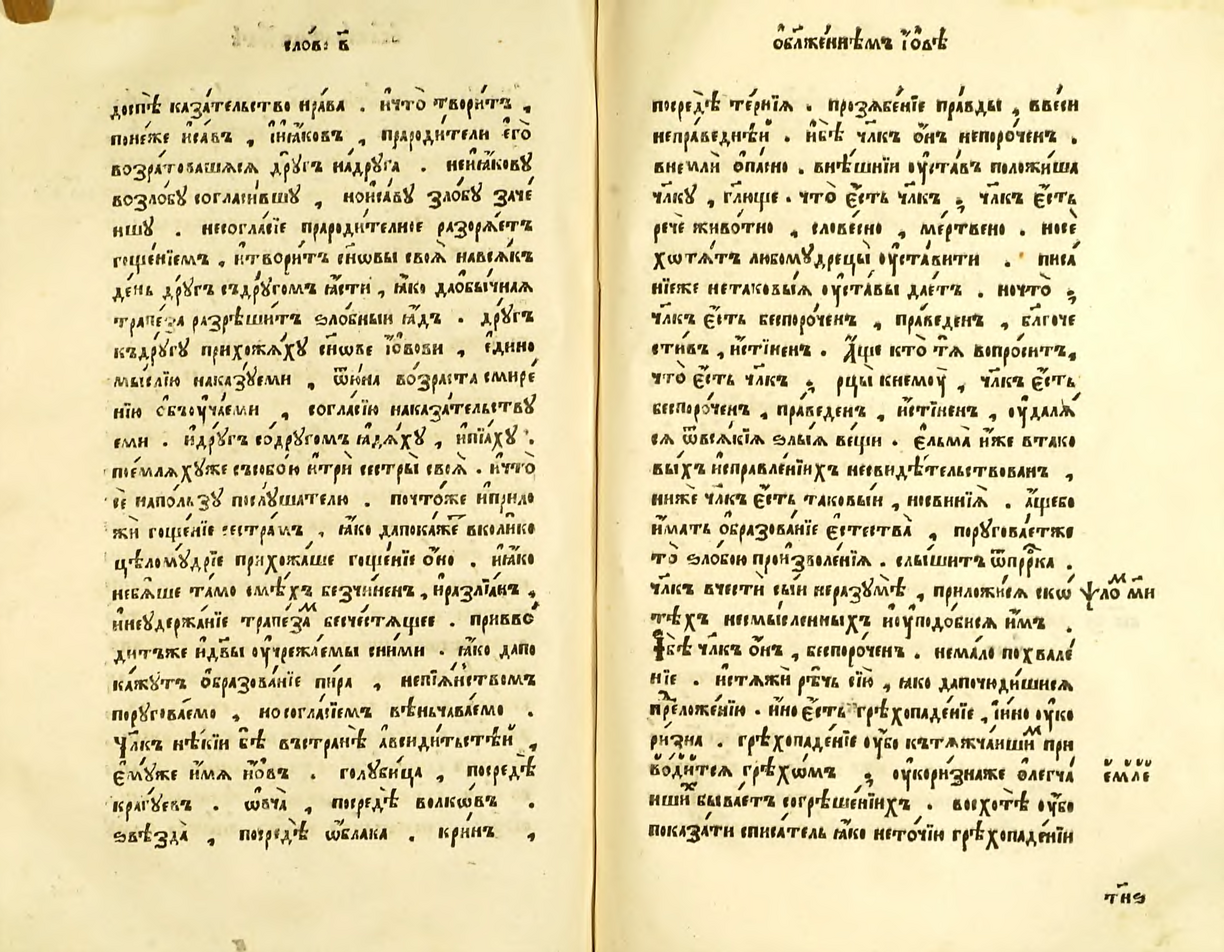 сло́в: в҃
доспѣ̀ каза́тельство нра́ва . и҆что̀ твори́тъ ,
поне́же и҆са́въ , і҆и҆а́ковъ , прароди́тели є҆го̀
возратова́шяся дрꙋ́гъ надрꙋ́га . неи҆ꙗ́ковꙋ
возло́бꙋ согласи́вшꙋ , нои҆са́вꙋ ѕло́бꙋ заче́
ншꙋ . несогла́сїе прароди́телнее разорѧ́етъ
гоще́нїемъ , и҆твори́тъ сн҃овы своѧ̀ навсѧ́къ
де́нь дрꙋ́гъ съдрꙋ́гомъ ꙗ҆́сти , ꙗ҆́ко даѡбы́чнаѧ
трапе́за разрѣши́тъ ѕло́бныи ꙗ҆́дъ . дрꙋ́гъ
къдрꙋ́гꙋ прихожѧ́хꙋ сн҃ове і҆́овови , є҆ди́но
мы́слїю наказꙋ́еми , ѿю́на во́зраста смире́
нїю ѻбъоуча́еми , согла́сїю наказа́тельствꙋ
еми . и҆дрꙋ́гъ содрꙋ́гомъ ꙗ҆дѧ́хꙋ , и҆пїѧ́хꙋ .
пое́млѧхꙋже съсобо́ю и҆трѝ сестры̀ своѧ̀ . и҆что̀
сѐ напо́льзꙋ послꙋ́шателю . почто́же и҆прило
жѝ гоще́нїе сестра́мъ , ꙗ҆́ко дапока́же вколи́ко
цѣломꙋ́дрїе прихожа́ше гоще́нїе ѻ҆́но . и҆ꙗ́ко
небѧ́ше та́мо смѣ́хъ безчи́ненъ , и҆разлїѧ́нъ ,
и҆неꙋдержа́нїе трапе́замъ бесче́стѧщее . привво́
ди́тъже и҆дв҃ы оу҆чрежа́емы сни́ми . ꙗ҆́ко дапо
ка́жꙋтъ ѻ҆бразова́нїе пи́ра , непїѧ́нствомъ
порꙋгова́емо , носогла́сїемъ вѣньчава́емо .
Чл҃къ нѣ́кїи бѣ̀ въстранѣ̀ а҆вси́дитьстѣ́й ,
є҆мꙋ́же и҆́мѧ и҆́овъ . голꙋби́ца , посредѣ̀
крагꙋ́евъ . ѡ҆вча̀ , посредѣ̀ волкѡ́въ .
ѕвѣзда̀ , посредѣ̀ ѡ҆́блака . кри́нъ ,
ѻ҆бл҃же́ннѣмъ і҆́овѣ
посредѣ̀ те́рнїѧ . прозѧбе́нїе пра́вды , ввсѝ
непра́веднѣй . и҆бѣ̀ чл҃къ ѻ҆́нъ непоро́ченъ .
внемлѝ ѻ҆па́сно . внѣ́шнїи оу҆ста́въ положи́ша
чл҃кꙋ , гл҃юще . что̀ є҆́сть чл҃къ ; чл҃къ є҆́сть
речѐ живо́тно , слове́сно , ме́ртвено . носѐ
хотѧ́тъ любомꙋ́дрецы оу҆ста́вити . писа́
нїеже нетаковы́ѧ оу҆ста́вы дае́тъ . ночто̀ ;
чл҃къ є҆́сть беспоро́ченъ , пра́веденъ , благоче
сти́въ , и҆́стїненъ . А҆́ще кто̀ тѧ̀ вопро́ситъ,
что̀ є҆́сть чл҃къ ; рцы̀ книемоу̀ , чл҃къ є҆́сть
беспоро́ченъ , пра́веденъ , и҆́стїненъ , оу҆далѧ́ѧ
сѧ ѿвсѧ́кїѧ ѕлы́ѧ ве́щи . є҆льма̀ и҆́же втако
вы́хъ исправле́нїихъ несвидѣ́тельствованъ ,
ниже́ чл҃къ є҆́сть таковы́и , носвинїѧ̀ . а҆́щебо
и҆́мать ѻ҆бразова́нїе є҆стества̀ , порꙋгова́етже
то̀ ѕло́бою произволе́нїѧ . слы́шитъ ѿпррⷪ҇ка .
чл҃къ вче́сти сы́и неразꙋмѣ̀ , приложи́сѧ скѡ
тѣ́хъ несмы́сленныхъ и҆оуподо́бисѧ и҆́мъ .
ѱало́м м҃и
И҆бѣ̀ чл҃къ ѻ҆́нъ , беспоро́ченъ . нема́ло похвале́
нїе . и҆стѧжѝ рѣ́чь сїю̀ , ꙗ҆́ко дапочюди́шисѧ
преложе́нїю . и҆́но є҆́сть грѣхопаде́нїе , и҆́но оу҆ко
ри́зна . грѣхопаде́нїе оу҆́бо кътѧжча́ишим при
во́дитсѧ грѣхѡ́мъ ; оу҆кори́знаже ѻ҆легча́
и҆ших быва́етъ согрѣше́нїихъ . восхотѣ̀ оу҆́бо
є҆́мле
показа́ти списа́тель ꙗ҆́ко нето́чїю грѣхопаде́нїи
т҃иѕ